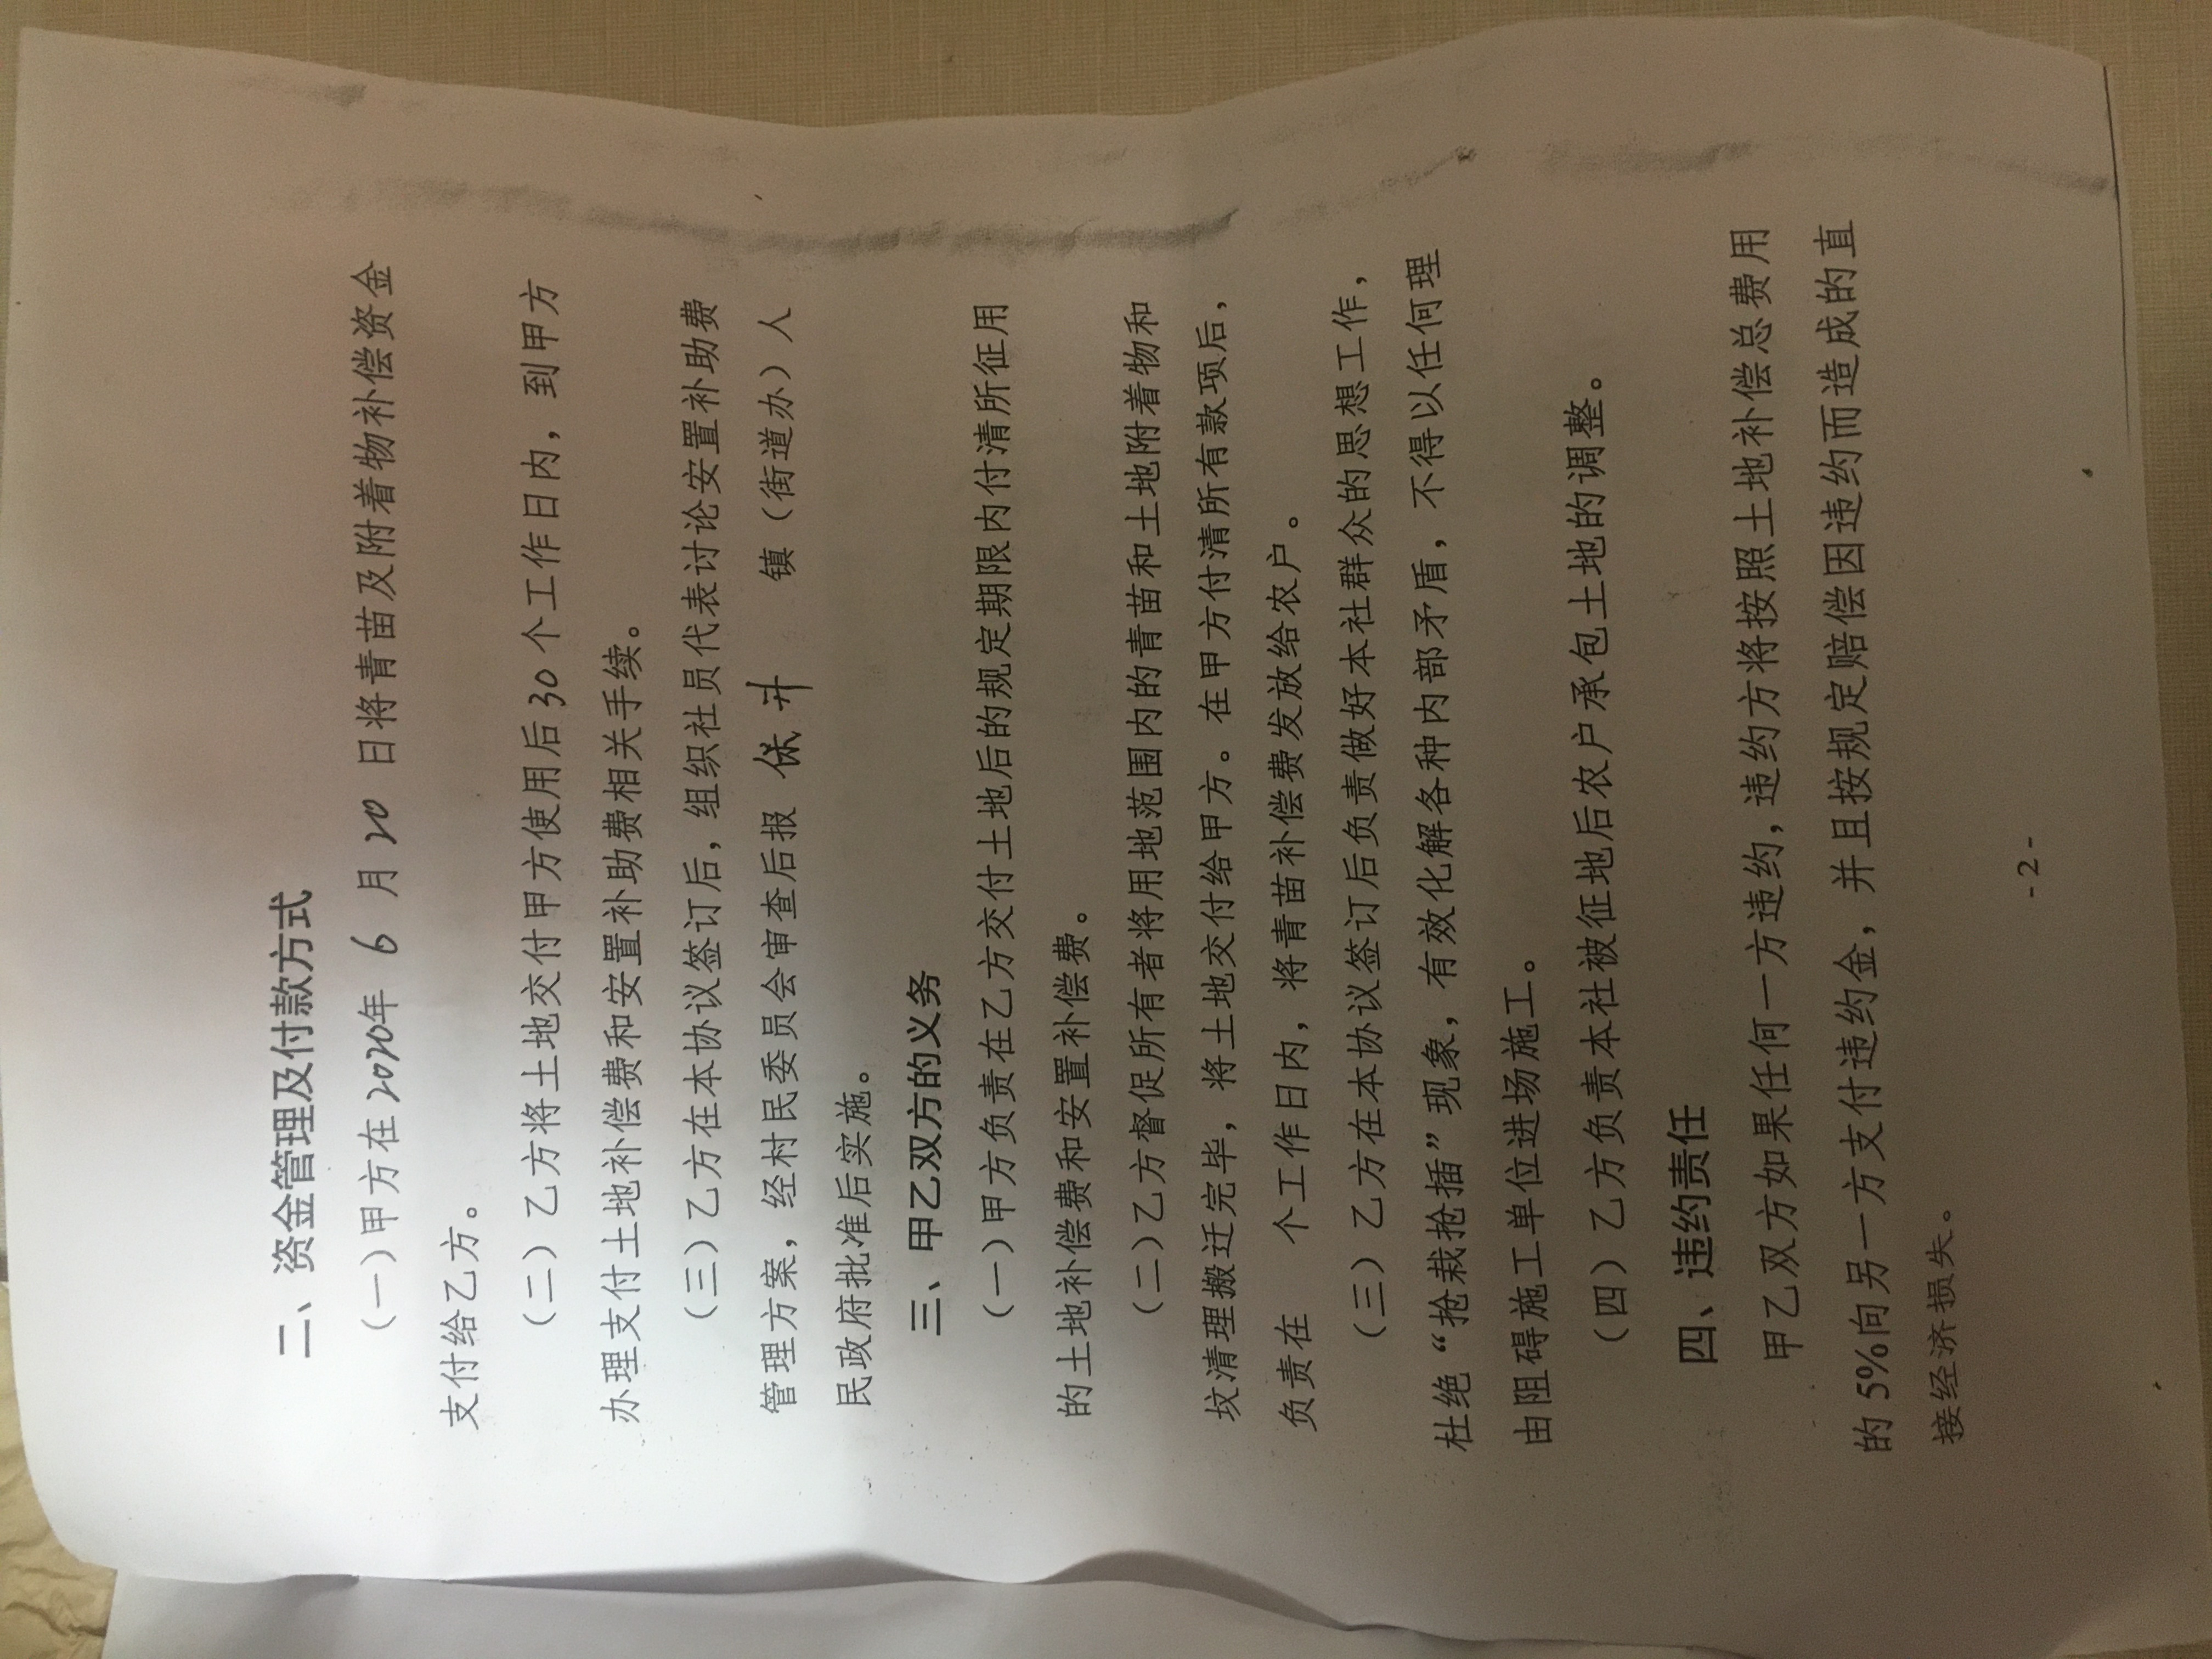 二、资金管理及付款方式
（一）甲方在2020年 6 月 20 日将青苗及附着物补偿资金
支付给乙方。
（二）乙方将土地交付甲方使用后30个工作日内，到甲方
办理支付土地补偿费和安置补助费相关手续。
（三）乙方在本协议签订后，组织社员代表讨论安置补助费
管理方案，经村民委员会审查后报 保升 镇（街道办）人
民政府批准后实施。
三、甲乙双方的义务
（一）甲方负责在乙方交付土地后的规定期限内付清所征用
的土地补偿费和安置补偿费。
（二）乙方督促所有者将用地范围内的青苗和土地附着物和
坟清理搬迁完毕，将土地交付给甲方。在甲方付清所有款项后，
负责在 个工作日内，将青苗补偿费发放给农户。
（三）乙方在本协议签订后负责做好本社群众的思想工作，
杜绝“抢栽抢插”现象，有效化解各种内部矛盾，不得以任何理
由阻碍施工单位进场施工。
（四）乙方负责本社被征地后农户承包土地的调整。
四、违约责任
甲乙双方如果任何一方违约，违约方将按照土地补偿总费用
的 5%向另一方支付违约金，并且按规定赔偿因违约而造成的直
接经济损失。
- 2 -